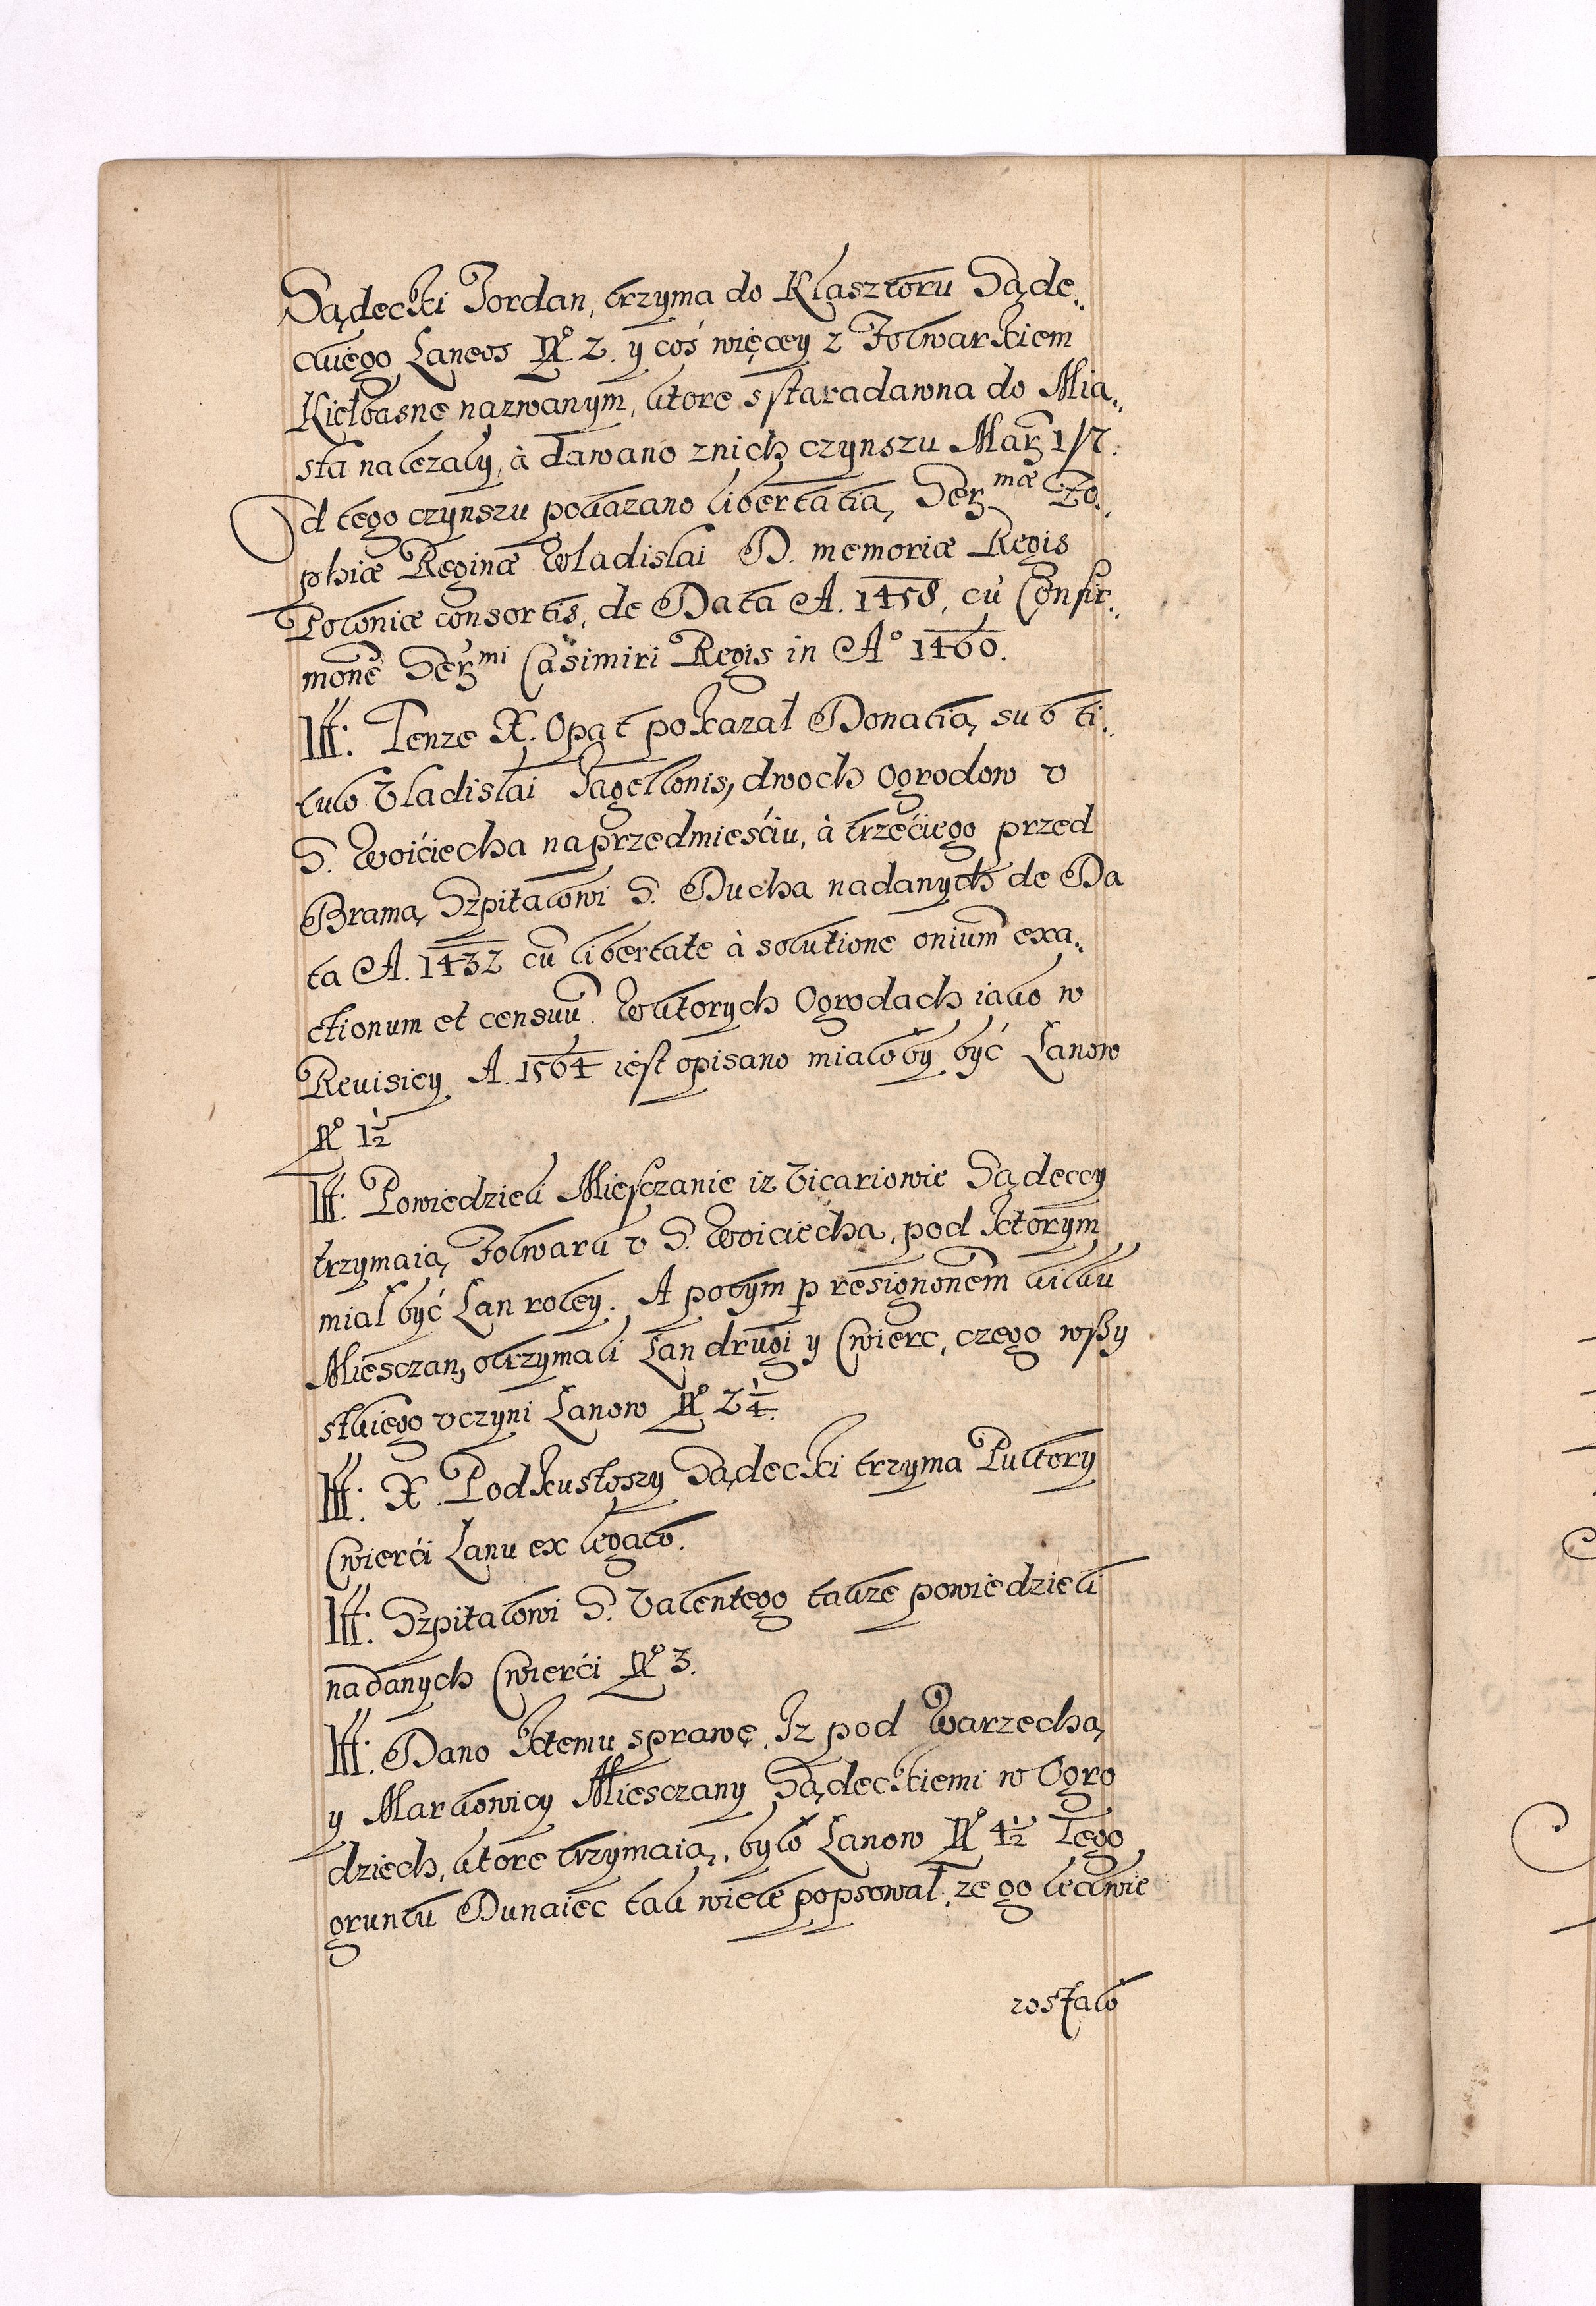 Sądecki Jordan, trzyma do Klasztoru Sąde„
ckiego Laneos N° 2. y coś więcey z Folwarkiem
Kiełbasne nazwanym, ktore sstaradawna do Mia„
sta nalezały, à dawano znich czynszu Mar. 1/7.
Od tego czynszu pokazano libertatią Ser.mæ Zo„
phiæ Reginæ Wladislai D. memoriæ Regis
Poloniæ consortis, de Data A. 1458, cu Confir„
mone Ser.mi Casimiri Regis in A° 1460.
It: Tenze X. Opat pokazał Donatią sub ti„
tulo Vladislai Jagellonis, dwoch Ogrodow v
S. Woićiecha naprzedmieśćiu, à trzećiego przed
Bramą Szpitalowi S. Ducha nadanych de Da
ta A. 1432 cu libertate à solutione onium exa„
ctionum et censuu. Wktorych Ogrodach iako w
Reuisiey A. 1564 iest opisano miało by być Lanow
N° 1½
It: Powiedzieli Miesczanie iz Vicariowie Sądeccy
trzymaią Folwark v S. Woiciecha, pod ktorym
miał być Lan roley. A potym p resignonem kilku
Miesczan, otrzymali Lan drugi y Cwierc, czego wszy
stkiego vczyni Lanow N° 2¼.
It: X. Podkustoszy Sądecki trzyma Pultory
Cwierći Lanu ex legato.
It: Szpitalowi S. Valentego takze powiedzieli
nadanych Cwierći N° 3.
It: Dano ktemu sprawę. Iz pod Warzechą
y Markowicy Miesczany Sądeckiemi w Ogro
dziech, ktore trzymaią, było Lanow N° 4½ Tego
gruntu Dunaiec tak wiele popsował, ze go ledwie
zostało